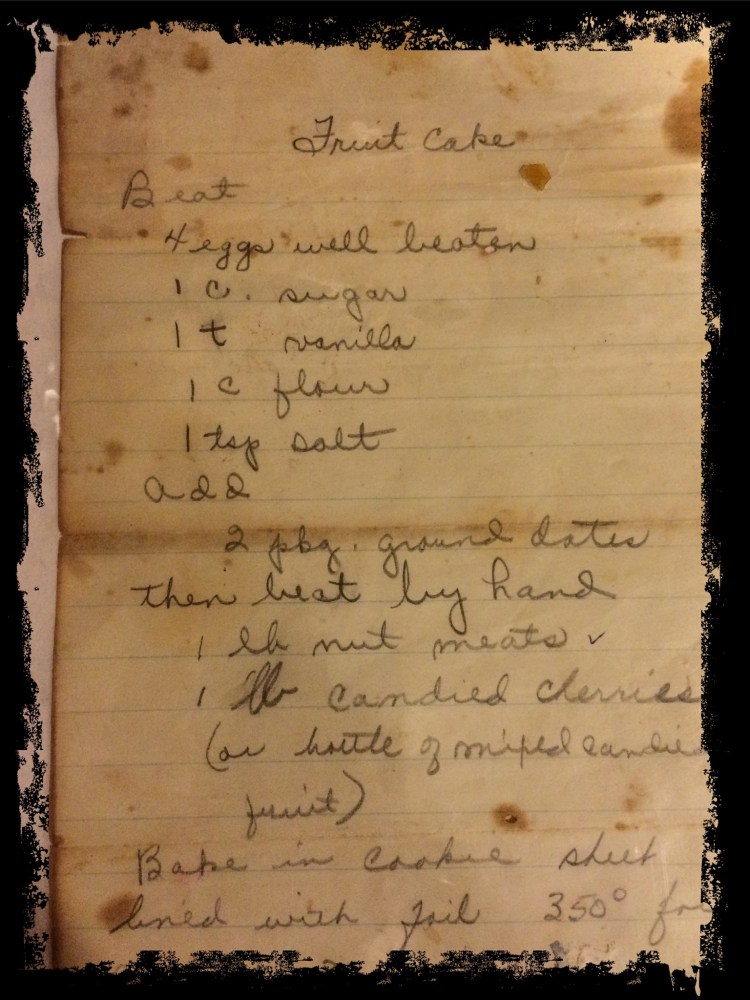 Fruit Cake
Beat
4 eggs well beaten
1 c. sugar
1 t vanilla
1 c flour
1 tsp salt
add
2 pkg. ground dates
then beat by hand
1 lb nut meats ✓
1 lb candied cherries
(or bottle of mixed candie
fruit)
Bake in cookie sheet
lined with foil 350° for